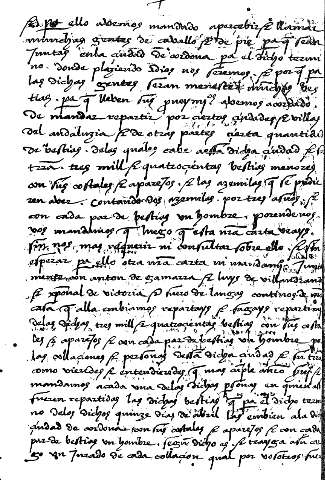 ello avemos mandado apercebir e llamar
muchas gentes de cavallo e de pie para que sean
juntas en la ciudad de cordova pa el dicho termi
no. donde plaziendo a dios nos seremos. e por que pa
las dichas gentes seran menester muchas bes
tias. pa que lleven sus avemos acordado
de mandar repartir por ciertas çiudades e villas
del andaluzia e de otras partes çierta quantidad
de bestias. delas quales cabe a essa dicha çiudad e su
trra. tres mill e quatroçientas bestias menores
con sus costales e aparejos. e las azemilas que se pudie
ren aver. contando dos azemilas por tres asnos. e
con cada par de bestias un hombre. porende nos
vos mandamos que luego que esta nra carta veays.
sin nos mas requerir ni consultar sobre ello. e sin
esperar pa ello otra nra carta ni mandamio
mente con anton de gamarra e luys de villandrando
e xpoval de victoria e suero de langas continos de nra
casa que alla embiamos repartays e fagays repartir
las dichas. tres mill e quatroçientas bestias con sus costa
les e aparejos e con cada par de bestias un hombre por
las collaçiones e personas dessa dicha çiudad e su trra
como vierdes e entendierdes que mas
mandamos a cada una delas dichas psonas en quien assi
fueren repartidas las dichas bestias que pa el dicho termi
no delos dichos quinze dias de abril las embien ala dicha
çiudad de cordova con sus costales e aparejos e con cada
par de bestias un hombre. segun dicho es e trayga a su car
go un jurado de cada collaçion qual por vosotros fuere